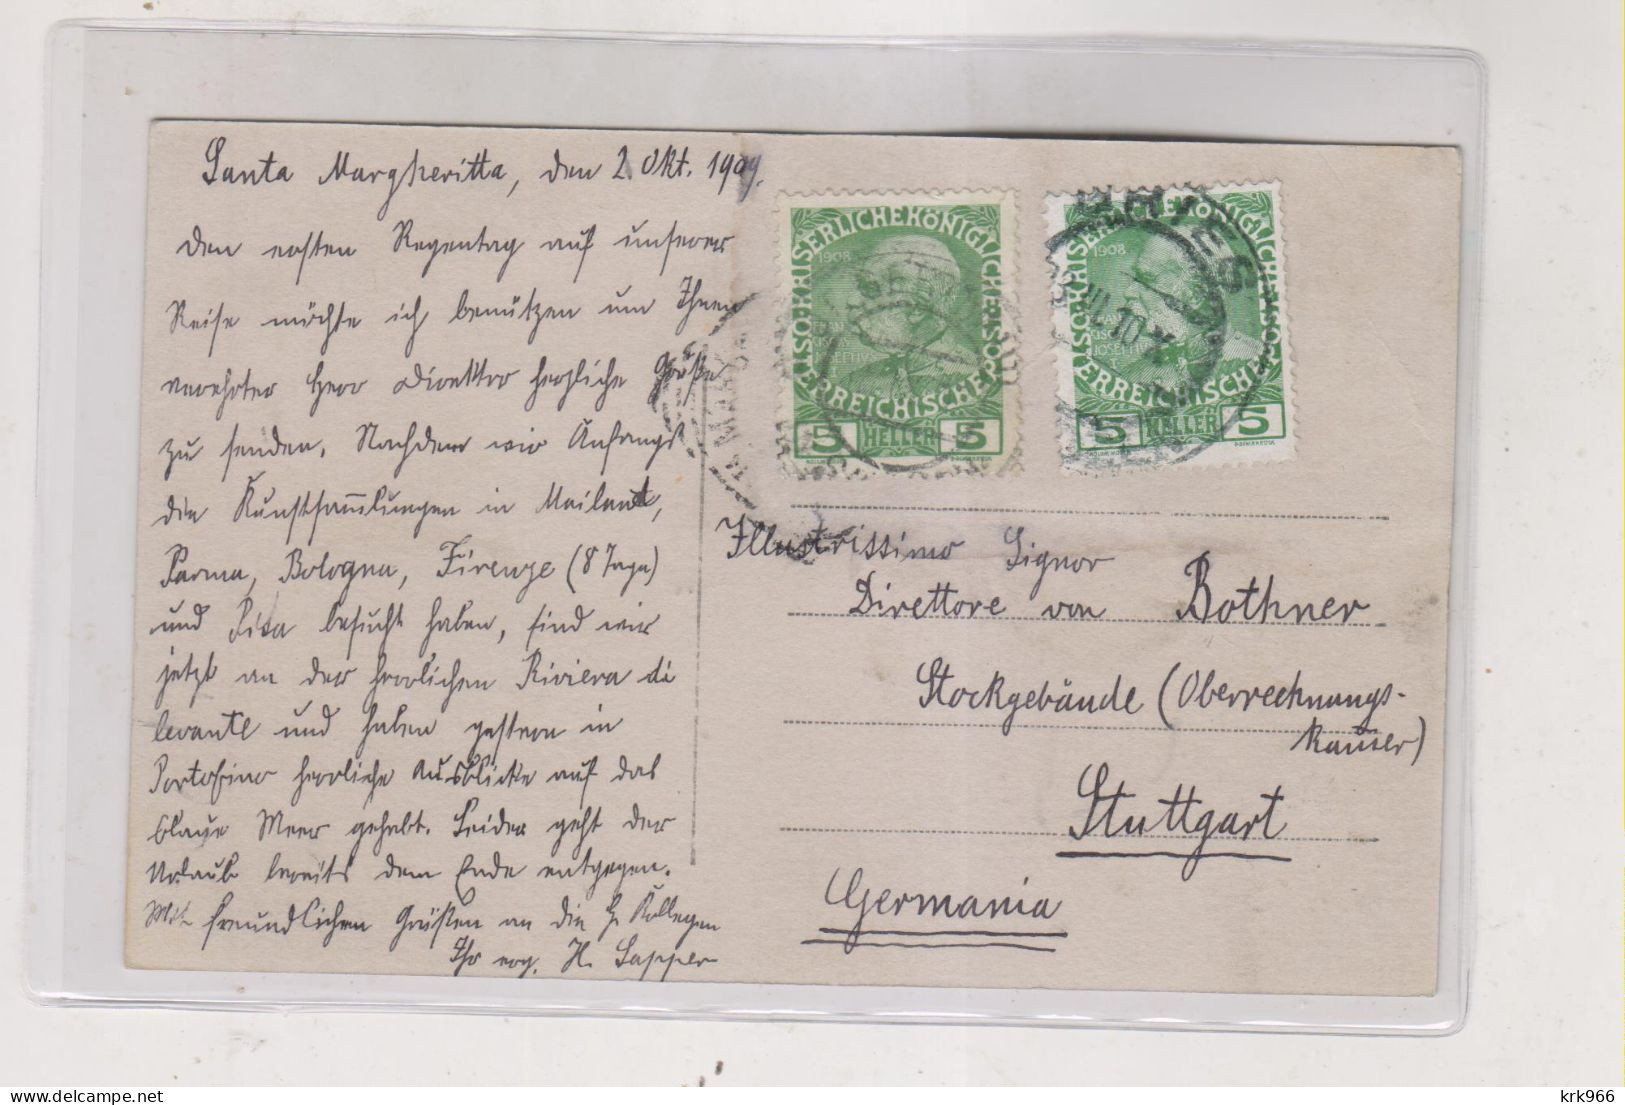 Santa Margheritta, den 2. Okt. 1909.
Den ersten Regentag auf unserer
Reise möchte ich benützen um Ihnen
verehrter Herr Direktor herzliche Grüße
zu senden. Nachdem wir Anfangs
die Kunstsam̅lungen in Mailand,
Parma, Bologna, Firenze (8 Tage)
und Pisa besucht haben, sind wir
jetzt an der herrlichen Riviera di
levante und haben gestern in
Portofino herrliche Ausblicke auf das
blaue Meer gehabt. Leider geht der
Urlaub bereits dem Ende entgegen.
Mit freundlichen Grüßen an die H. Kollegen
Ihr erg. H. Sapper
KAISERLICHEKÖNIGLICHE
ÖSTERREICHISCHEPOST
1908
FRAN
JOSEF
5 HELLER 5
KAISERLICHEKÖNIGLICHE
ÖSTERREICHISCHEPOST
1908
FRAN
JOSEF
5 HELLER 5
Illustrissimo Signor
Direttore von Bothner
Stockgebäude (Oberrechnungs-
kam̅er)
Stuttgart
Germania
krk966